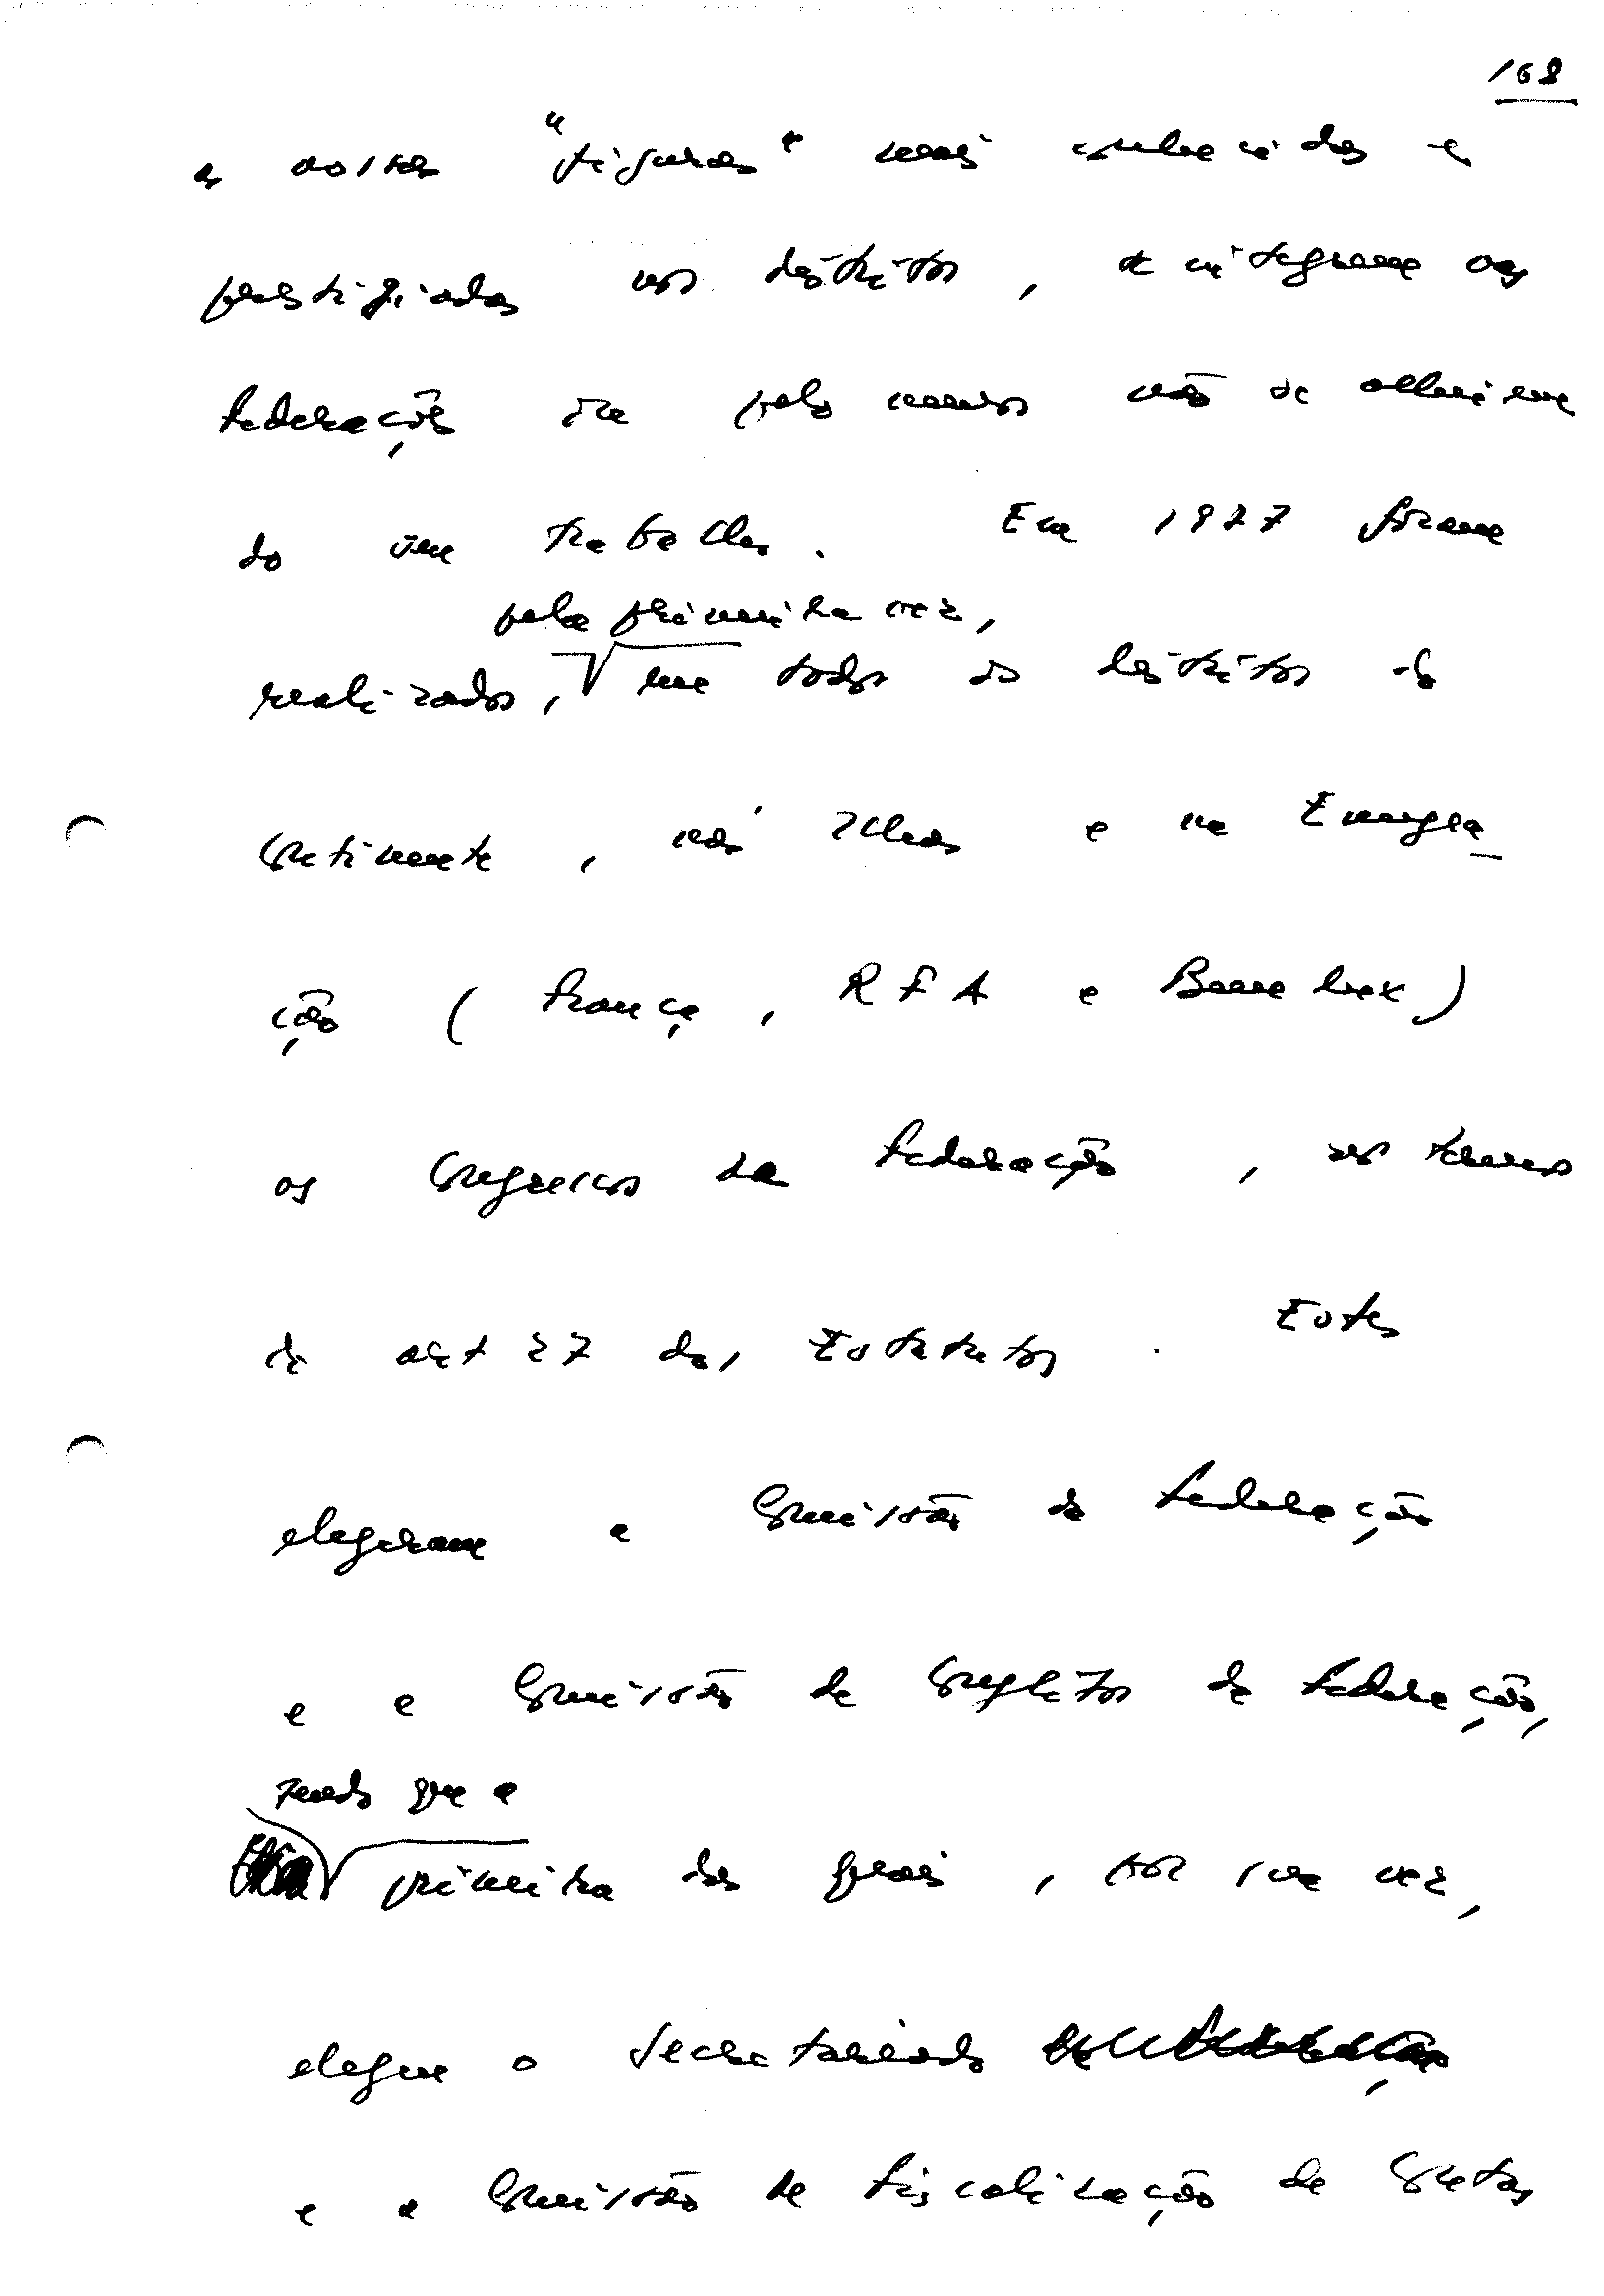 168
as nossas "figuras" mais conhecidas e
prestigiadas nos distritos, se integrem nas
Federações ou pelo menos não se alheiem
do seu trabalho. Em 1977 foram
pela primeira vez,
realizados, em todos os distritos do
Continente, nas Ilhas e na Emigra
ção (França, RFA e Benelux)
os Congressos da Federação, nos termos
do art 27 dos Estatutos. Estes
elegeram a Comissão da Federação
e a Comissão de Conflitos da Federação,
sendo que a
primeira das quais, por sua vez,
elegeu o Secretariado
e a Comissão de Fiscalização de Contas